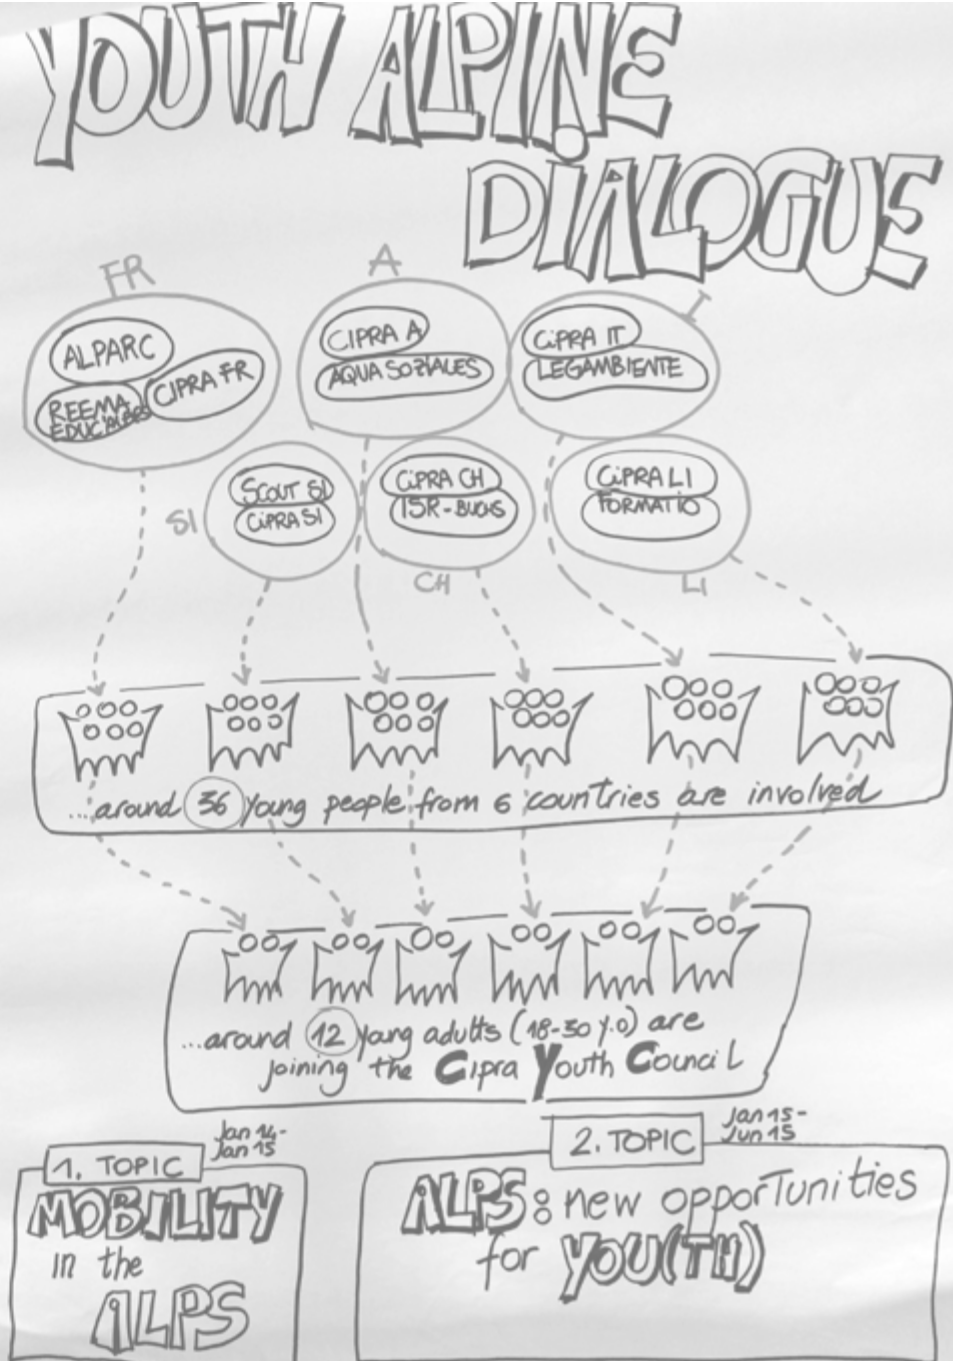 YOUTH ALPINE
DIALOGUE
FR
ALPARC
REEMA
EDUC'ALPES
CIPRA FR
A
CIPRA A
AQUA SOZIALES
I
CIPRA IT
LEGAMBIENTE
SI
SCOUT SI
CIPRA SI
CIPRA CH
ISR-BUCHS
CH
CIPRA LI
FORMATIO
LI
...around 36 young people from 6 countries are involved
...around 12 young adults (18-30 y.o) are
joining the Cipra Youth Council
1. TOPIC
Jan 14-
Jan 15
MOBILITY
in the
ALPS
2. TOPIC
Jan 15-
Jun 15
ALPS: new opportunities
for YOU(TH)